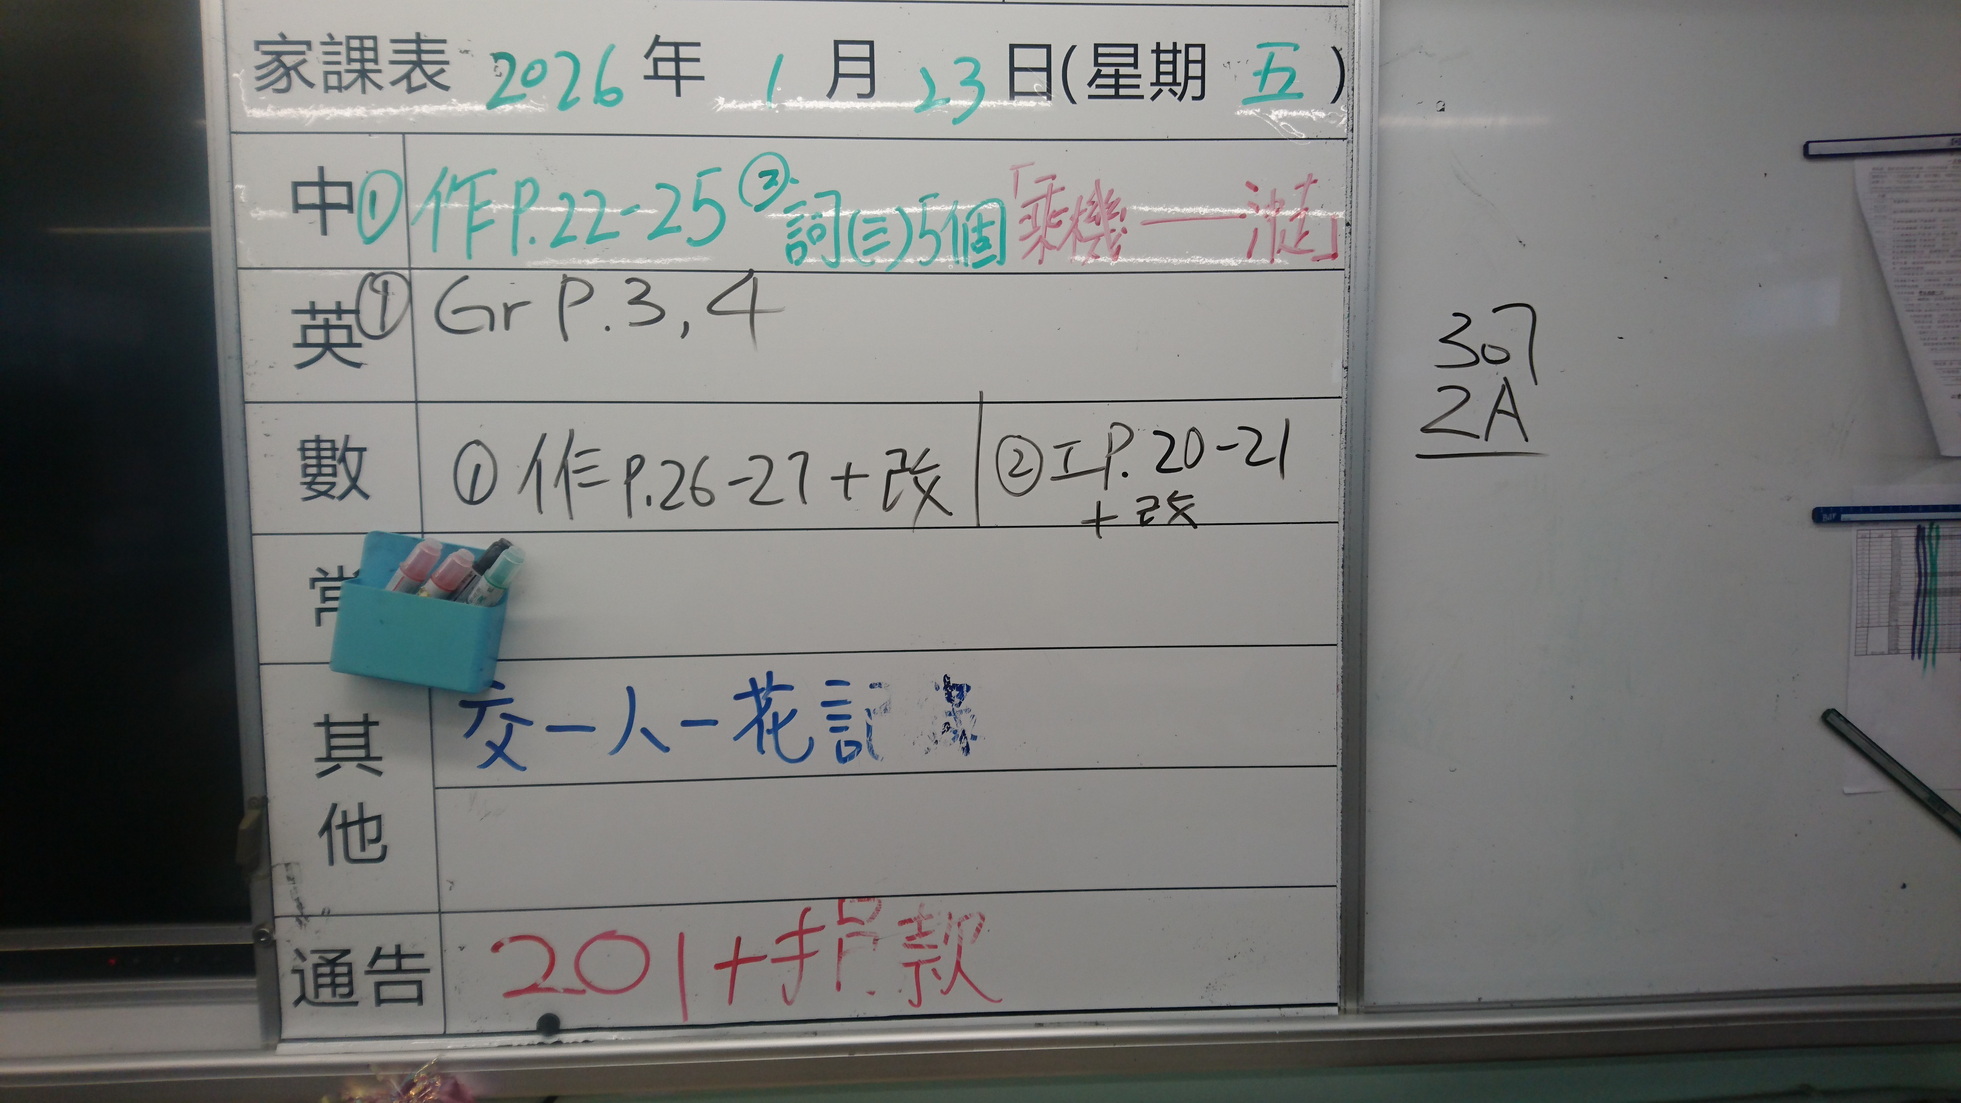 家課表 2026 年 1 月 23 日(星期 五)
中 ① 作P.22-25 ② 詞(三)5個「乘機——沖走」
英 ① Gr P.3,4
數 ① 作 P.26-27+改 ② 工P.20-21
+改
常
其他 交一人一花記錄
通告 201+捐款
307
2A